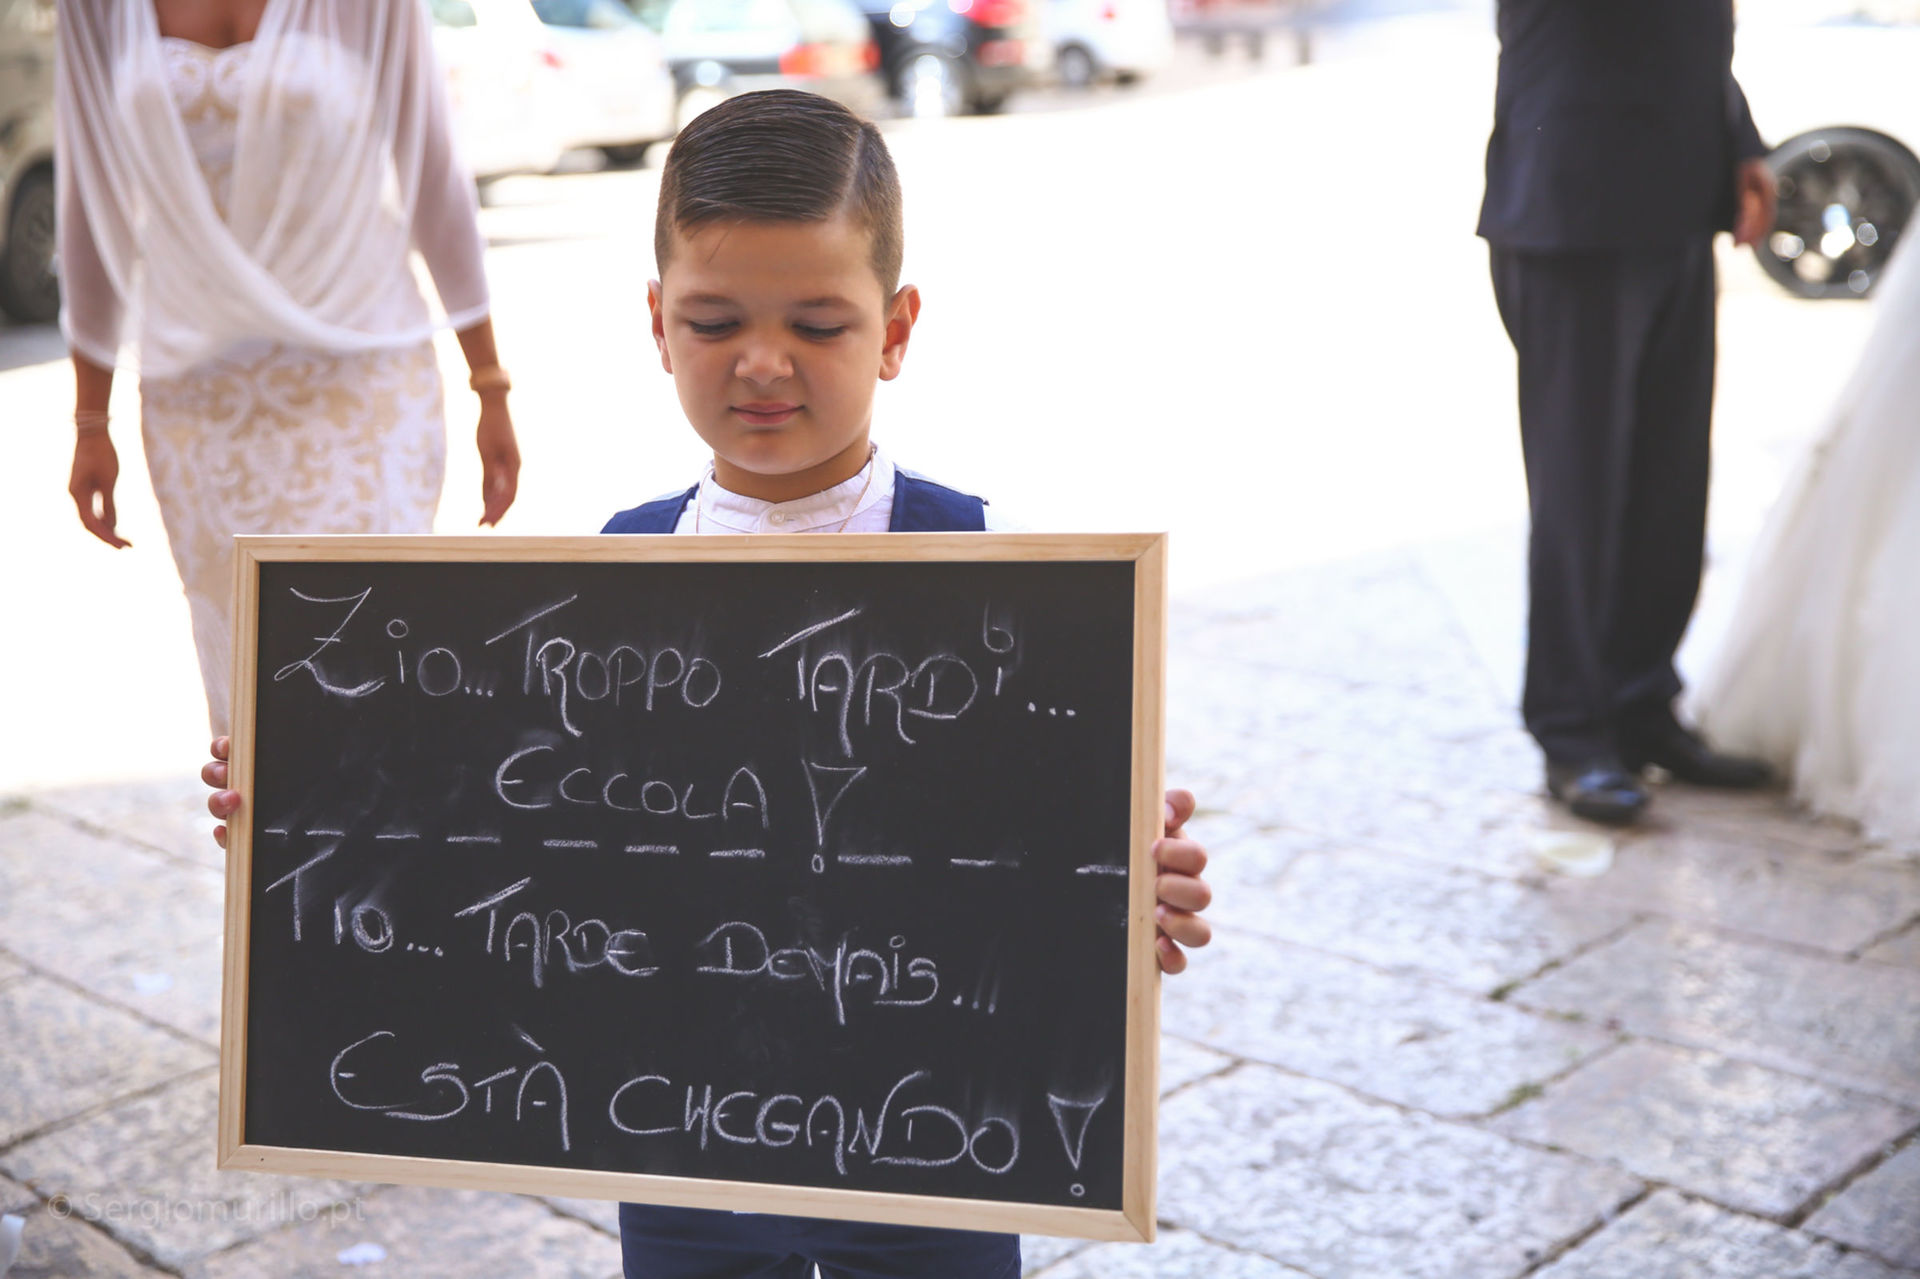 Zio... TROPPO TARDi...
ECCOLA!
Tio... TARDE DEMAiS...
ESTÀ CHEGANDO!
© Sergiomurillo.pt